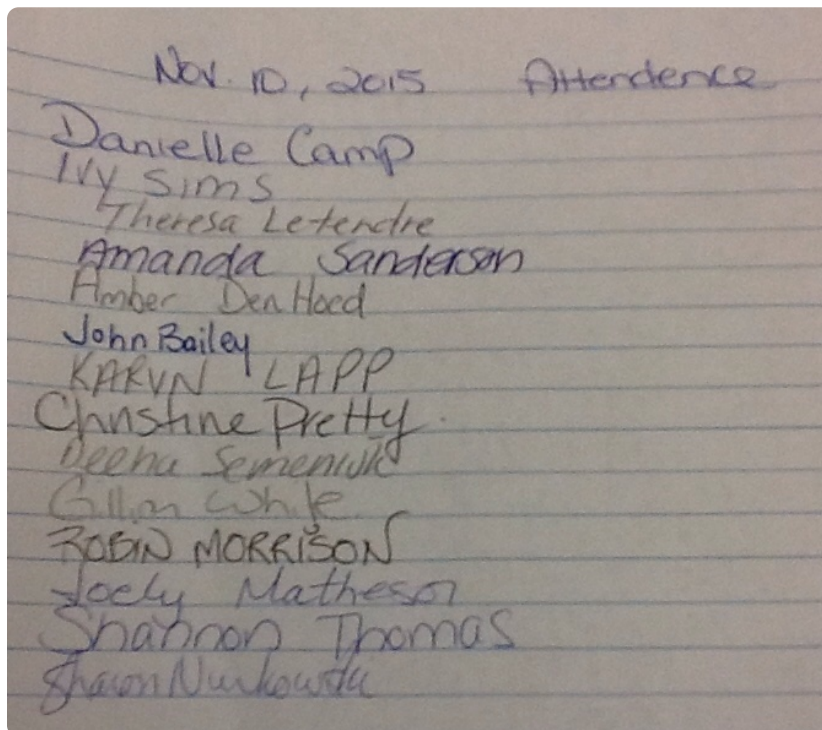 Nov. 10, 2015 Attendence
Danielle Camp
Ivy Sims
Theresa Letendre
Amanda Sanderson
Amber Den Hoed
John Bailey
KARYN LAPP
Christine Pretty
Deena Semeniuk
White
ROBIN MORRISON
Joely Matheson
Shannon Thomas
Sharon